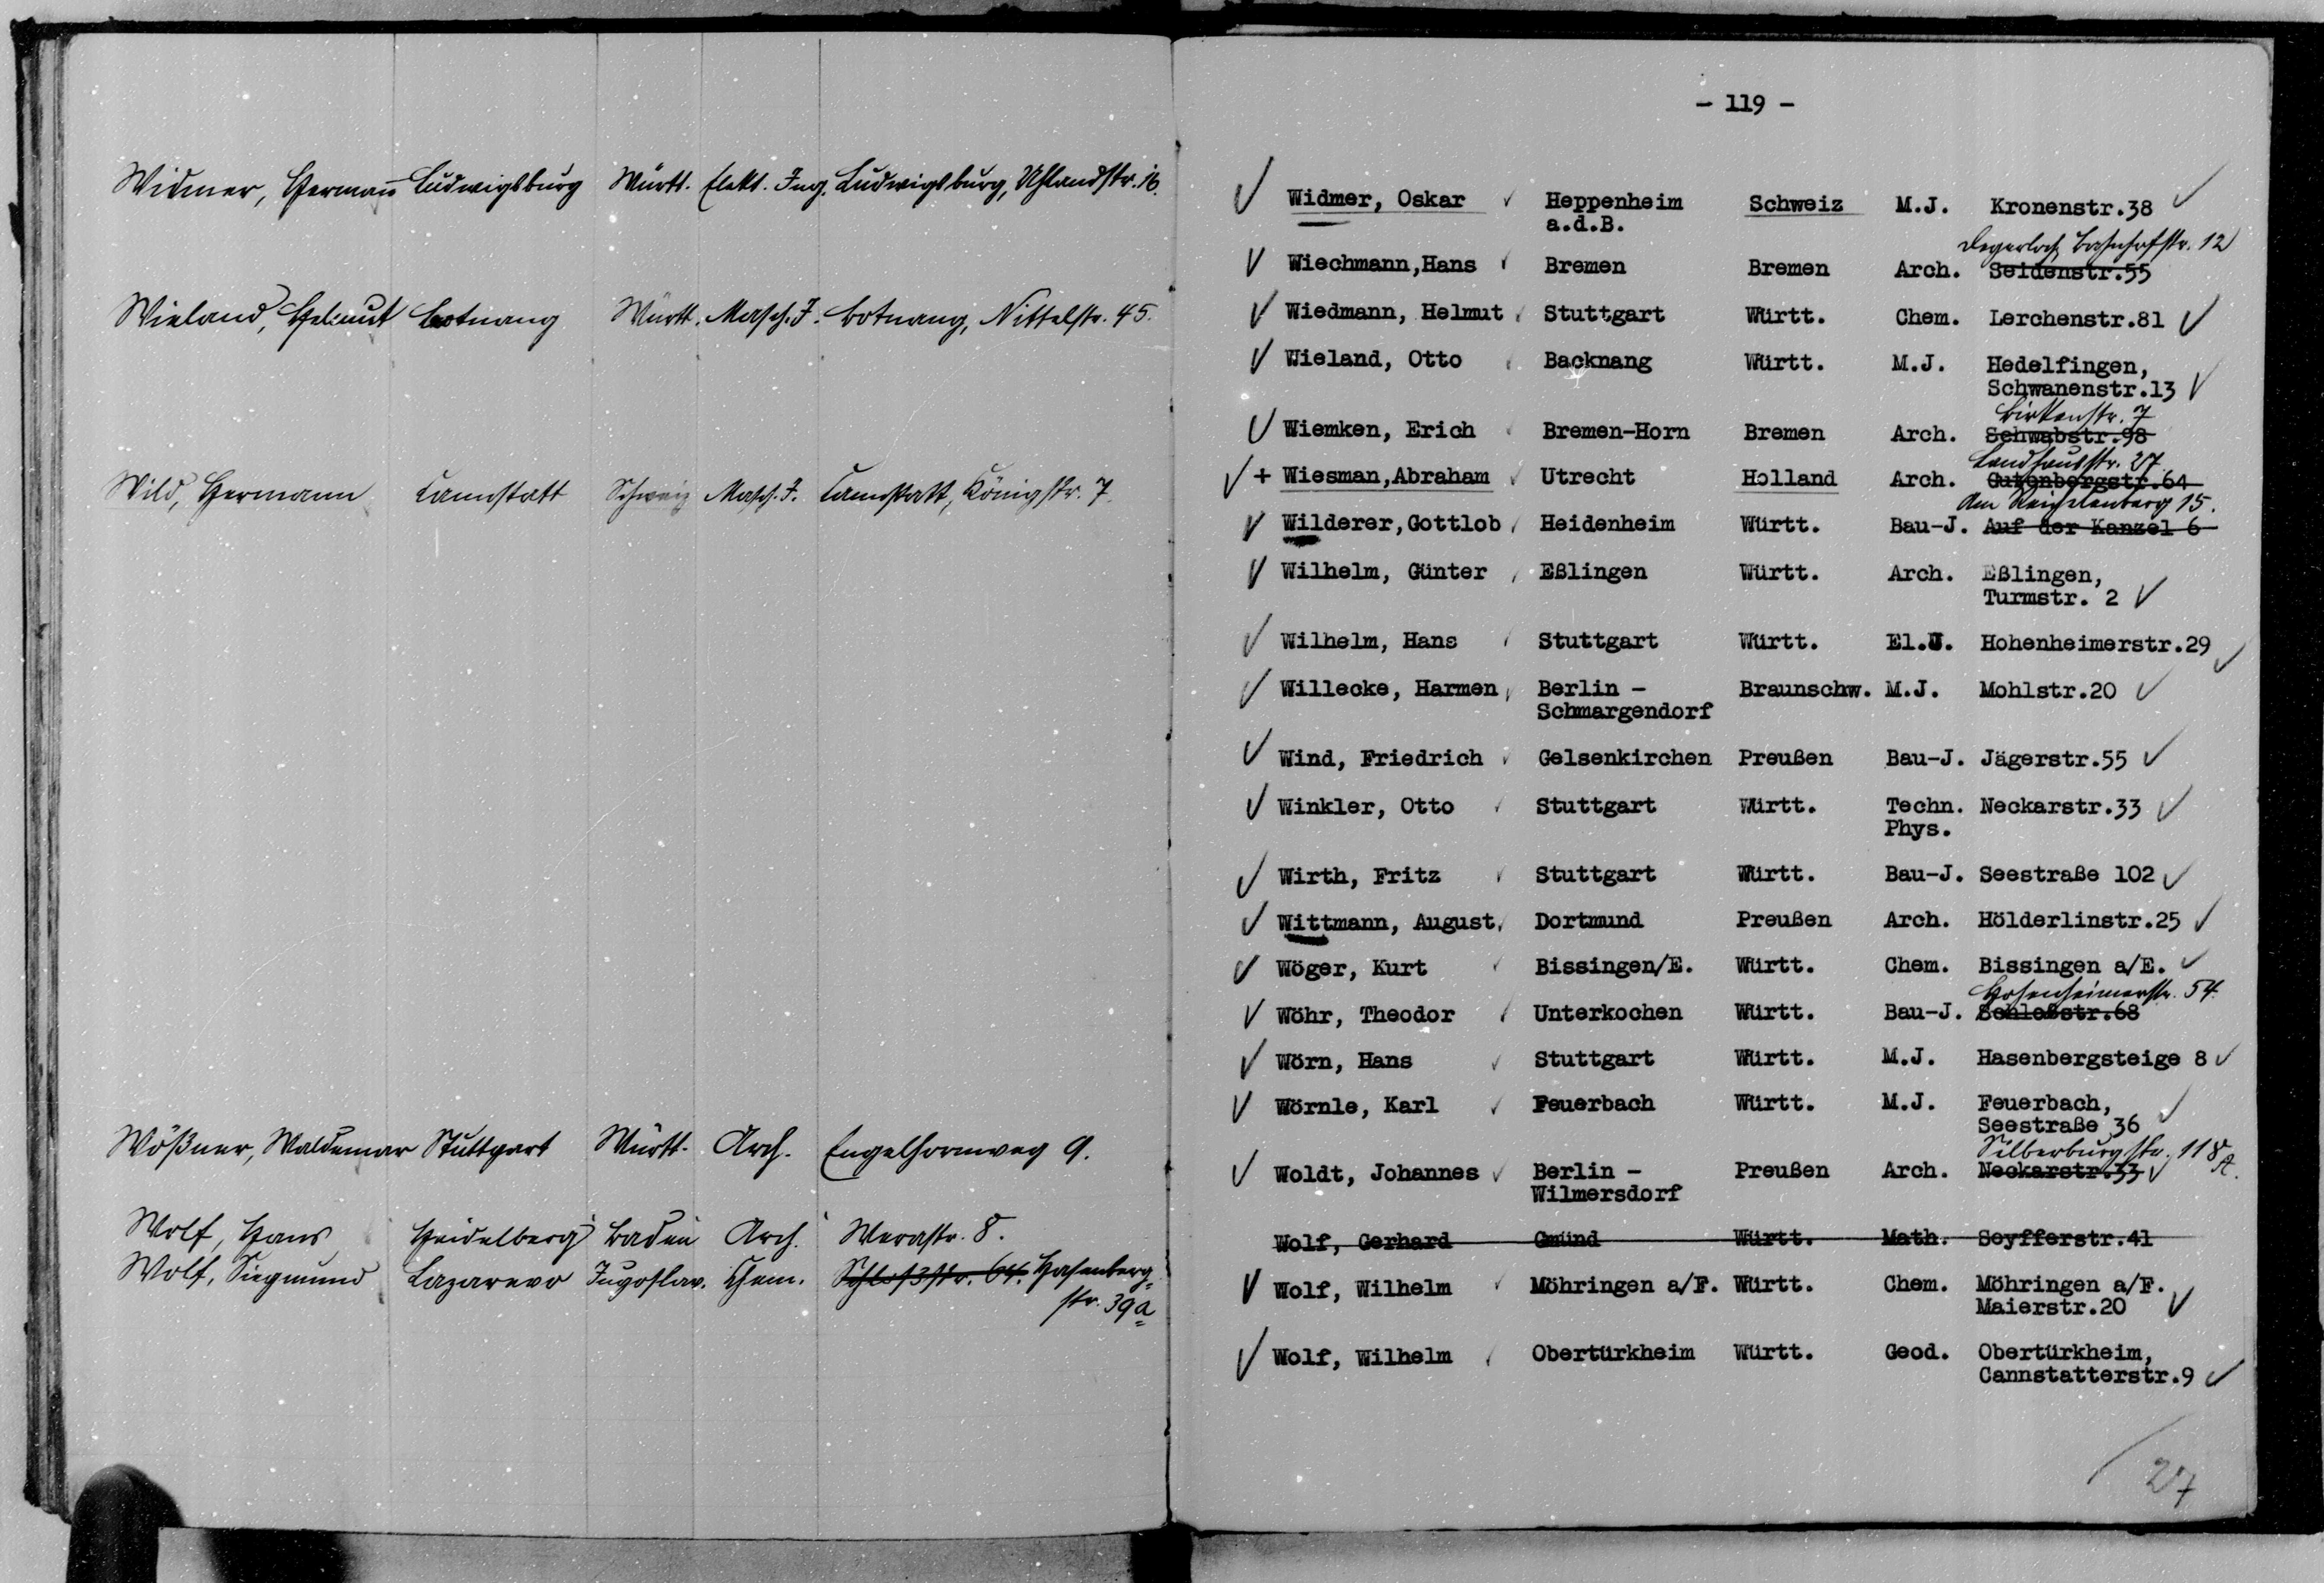 Widmer, Hermann Ludwigsburg Württ. Elekt. Ing. Ludwigsburg, Uhlandstr. 16.
Wieland, Helmut Botnang Württ. Masch. I. Botnang, Nittelstr. 45.
Wild, Hermann Cannstatt Schweiz Masch. I. Cannstatt, Königstr. 7
Wößner, Waldemar Stuttgart Württ. Arch. Engelhornweg 9.
Wolf, Hans Heidelberg Baden Arch. Werastr. 8.
Wolf, Siegmund Lazarevo Jugoslav. Chem. Schloßstr. 64. Hasenberg-
str. 39a
- 119 -
Widmer, Oskar Heppenheim Schweiz M.J. Kronenstr.38
a.d.B.
Degerloch, Bahnhofstr. 12
Wiechmann,Hans Bremen Bremen Arch. Seidenstr.55
Wiedmann, Helmut Stuttgart Württ. Chem. Lerchenstr.81
Wieland, Otto Backnang Württ. M.J. Hedelfingen,
Schwanenstr.13
Birkenstr. 7
Wiemken, Erich Bremen-Horn Bremen Arch. Schwabstr.98
Landhausstr. 27
+ Wiesman,Abraham Utrecht Holland Arch. Gutenbergstr.64
Am Reichelenberg 15.
Wilderer,Gottlob Heidenheim Württ. Bau-J. Auf der Kanzel 6
Wilhelm, Günter Eßlingen Württ. Arch. Eßlingen,
Turmstr. 2
Wilhelm, Hans Stuttgart Württ. El.J. Hohenheimerstr.29
Willecke, Harmen Berlin - Braunschw. M.J. Mohlstr.20
Schmargendorf
Wind, Friedrich Gelsenkirchen Preußen Bau-J. Jägerstr.55
Winkler, Otto Stuttgart Württ. Techn. Neckarstr.33
Phys.
Wirth, Fritz Stuttgart Württ. Bau-J. Seestraße 102
Wittmann, August Dortmund Preußen Arch. Hölderlinstr.25
Wöger, Kurt Bissingen/E. Württ. Chem. Bissingen a/E.
Hohenheimerstr. 54.
Wöhr, Theodor Unterkochen Württ. Bau-J. Schloßstr.68
Wörn, Hans Stuttgart Württ. M.J. Hasenbergsteige 8
Wörnle, Karl Feuerbach Württ. M.J. Feuerbach,
Seestraße 36
Silberburgstr. 118 A.
Woldt, Johannes Berlin - Preußen Arch. Neckarstr.33
Wilmersdorf
Wolf, Gerhard Gmünd Württ. Math. Seyfferstr.41
Wolf, Wilhelm Möhringen a/F. Württ. Chem. Möhringen a/F.
Maierstr.20
Wolf, Wilhelm Obertürkheim Württ. Geod. Obertürkheim,
Cannstatterstr.9
27